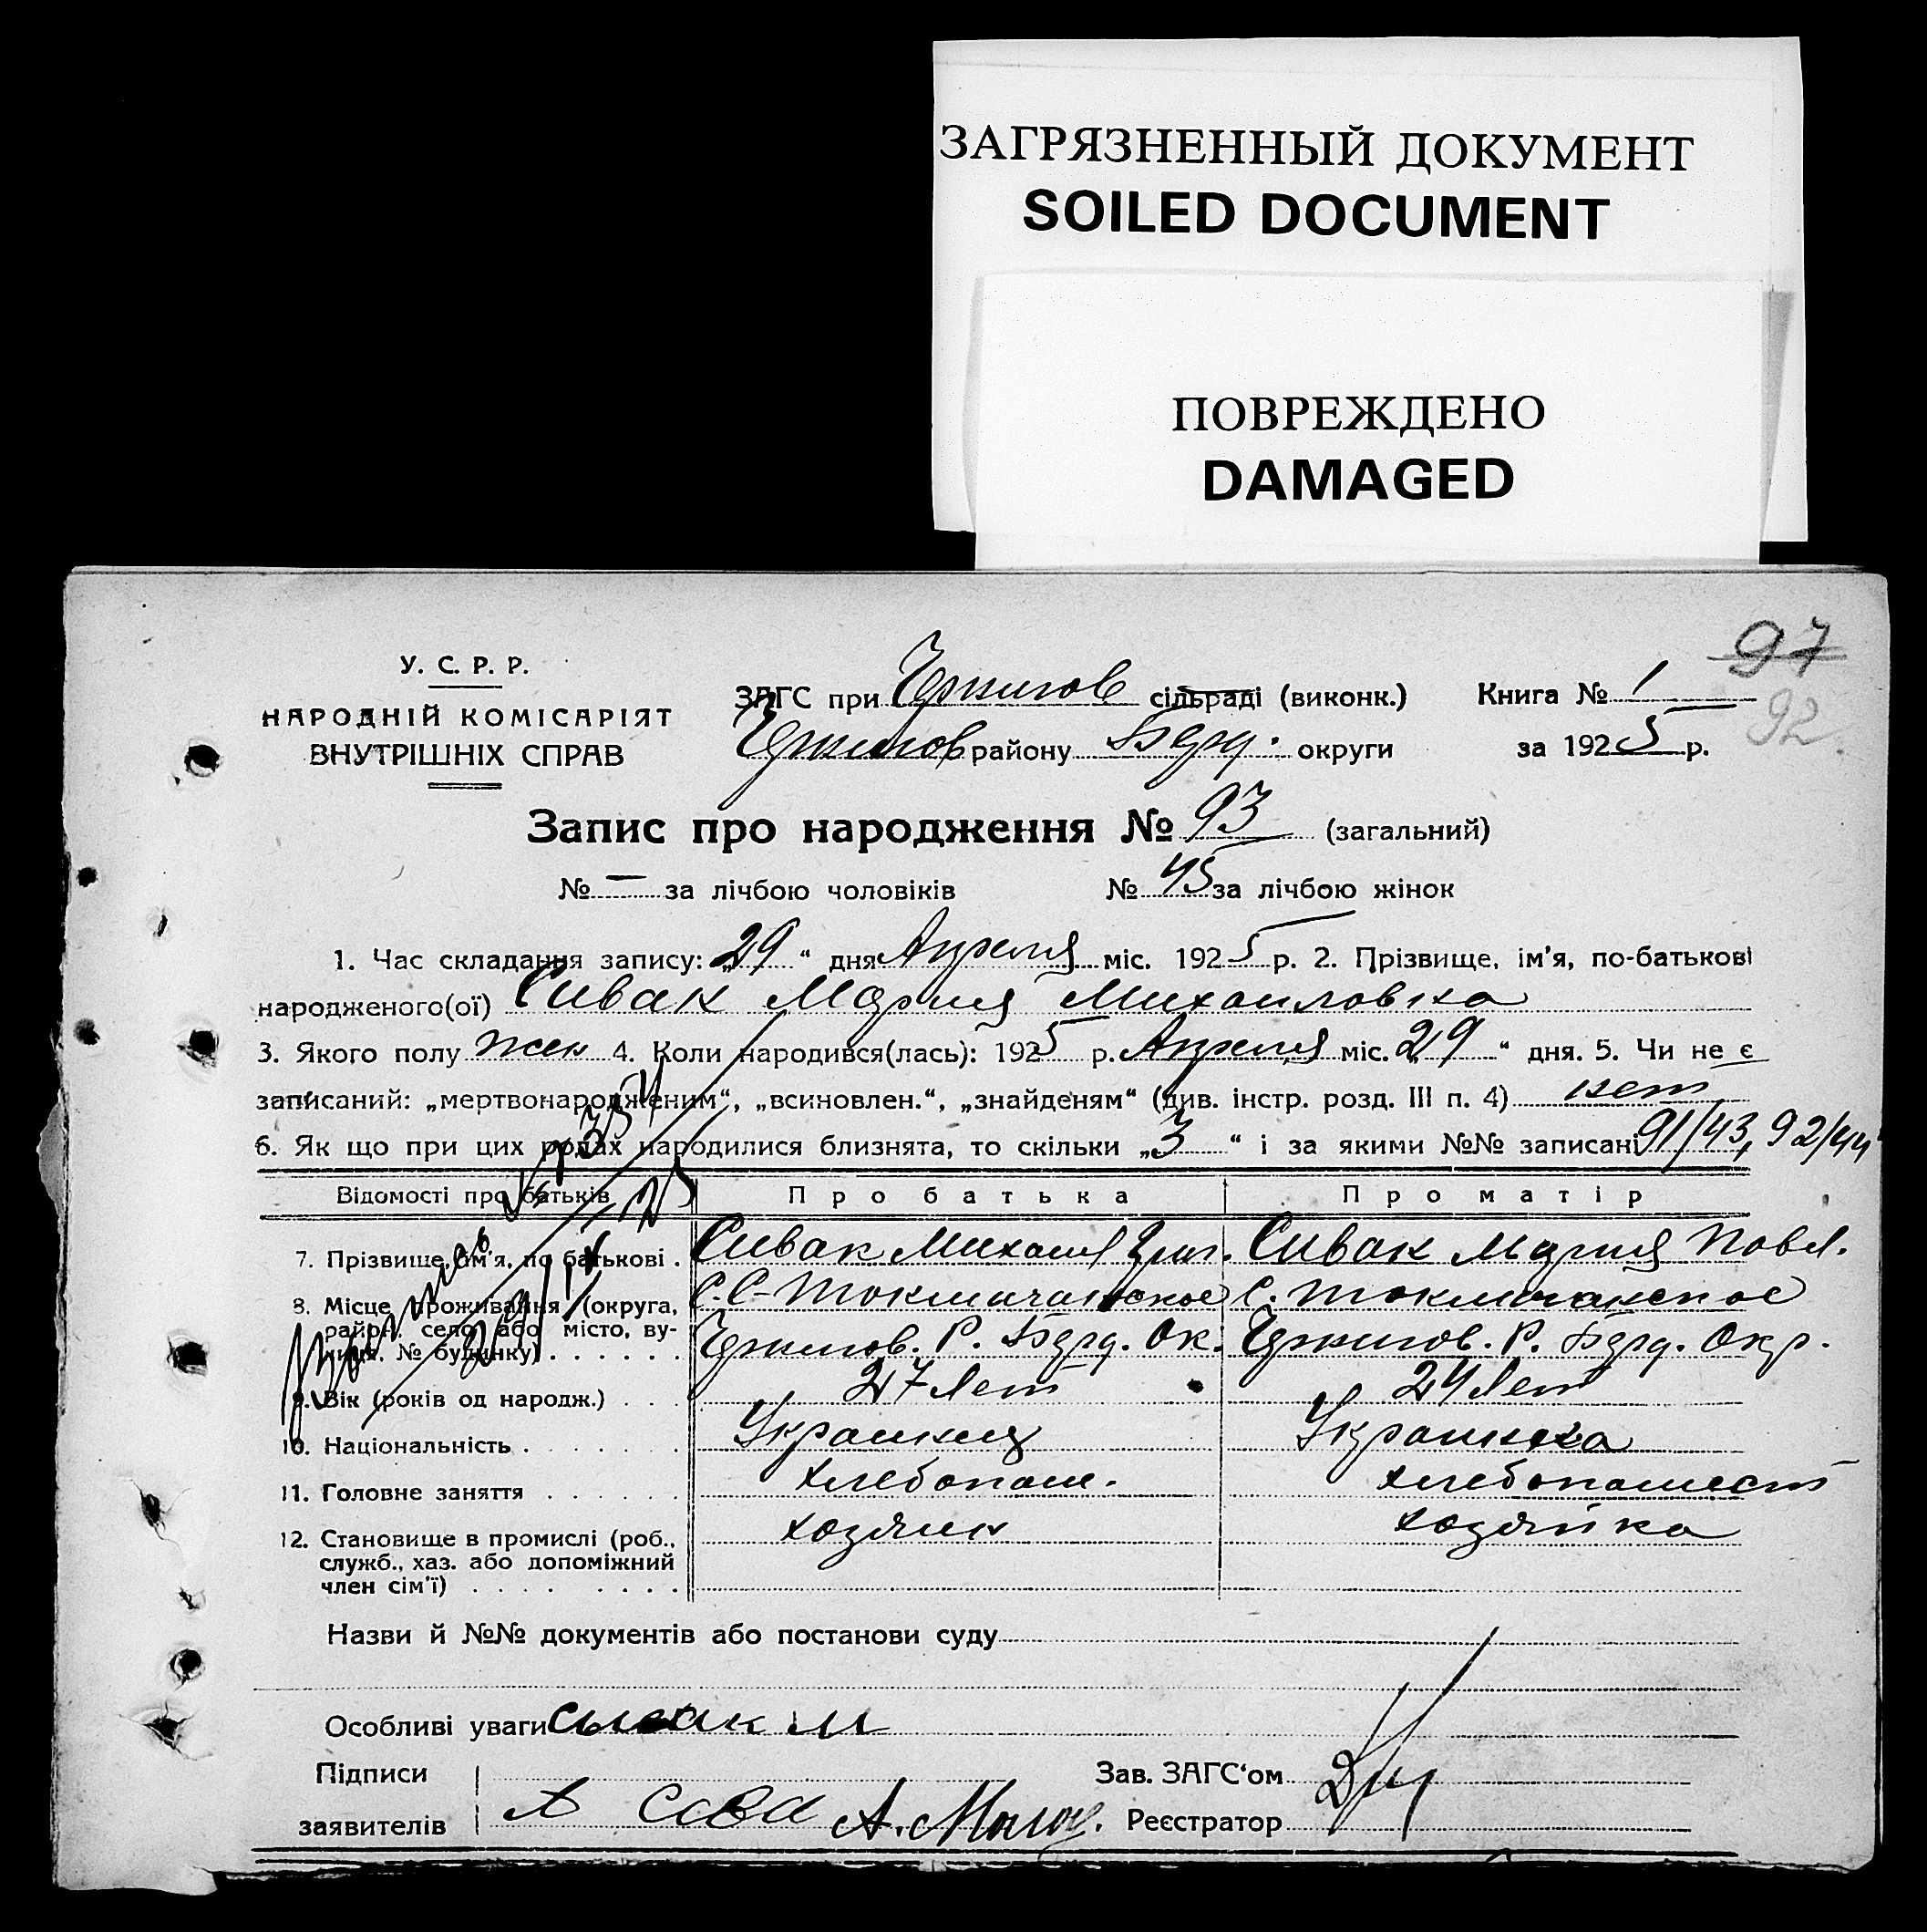 ЗАГРЯЗНЕННЫЙ ДОКУМЕНТ
SOILED DOCUMENT
ПОВРЕЖДЕНО
DAMAGED
97
92
У. С. Р. Р.
НАРОДНІЙ КОМІСАРІЯТ
ВНУТРІШНІХ СПРАВ
ЗАГС при Чернигов сільраді (виконк.) Книга № 1
Чернигов району Берд. округи за 1925 р.
Запис про народження № 93 (загальний)
№ — за лічбою чоловіків № 45 за лічбою жінок
1. Час складання запису: „29“ дня Апреля міс. 1925 р. 2. Прізвище, ім'я, по-батькові
народженого(ої) Сивак Мария Михаиловна
3. Якого полу жен 4. Коли народився(лась): 1925 р. Апреля міс. „29“ дня. 5. Чи не є
записаний: „мертвонародженим“, „всиновлен.“, „знайденям“ (див. інстр. розд. III п. 4) нет
6. Як що при цих родах народилися близнята, то скільки „3“ і за якими №№ записані 91/43, 92/44
Відомості про батьків Про батька Про матір
7. Прізвище, ім'я, по батькові . Сивак Михаил Григ. Сивак Мария Павл.
8. Місце проживання (округа, район, село або місто, вулиця, № будинку) С. Токмачанское
Чернигов. Р. Берд. Ок. Чернигов. Р. Берд. Окр.
9. Вік (років од народж.) . . . 27 лет 24 лет
10. Національність . . . . . . . Украинец Украинка
11. Головне заняття . . . . . . хлебопаш. хлебопашест
12. Становище в промислі (роб., хозяин хозяйка
служб., хаз. або допоміжний
член сім'ї) . . . . . . . .
Назви й №№ документів або постанови суду
Особливі уваги Сывак М
Підписи Зав. ЗАГС'ом
заявителів А Сава А. Реєстратор